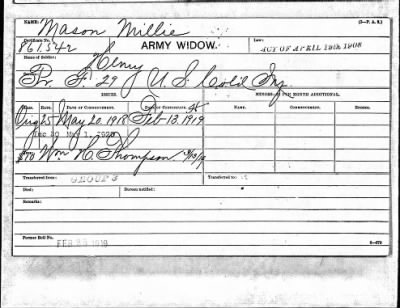 NAME: Mason Millie (3—P. A. S.)
Certificate No. ARMY WIDOW. Law:
861.542 ACT OF APRIL 19th 1908
Name of Soldier: Henry
Service: Pv. G. 29 U.S. Col'd Inf.
ISSUES. MINORS, $2 PER MONTH ADDITIONAL.
RATE. DATE OF COMMENCEMENT. DATE OF CERTIFICATE. NAME. COMMENCED. ENDING.
Aug 25 May 20, 1918 Feb. 13. 1919
Dec 30 May 1, 1920
Wm. H. Thompson
Transferred from GROUP 3 Transferred to
Died: Bureau notified:
Remarks:
Former Roll No. FEB 25 1919